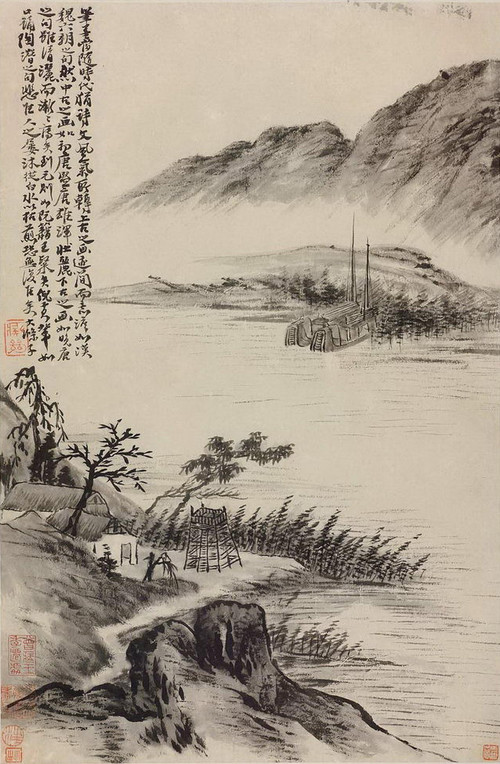 筆墨當隨時代猶詩文風氣所轉上古之畫迹簡而意澹如漢
魏六朝之句然中古之畫如初唐盛唐雄渾壯麗下古之畫如晚唐
之句雖清灑而漸〻薄矣到元則如阮籍王粲矣倪黃輩如
口誦陶潛之句悲佳人之屢沐從白水以枯煎恐無復佳矣大滌子